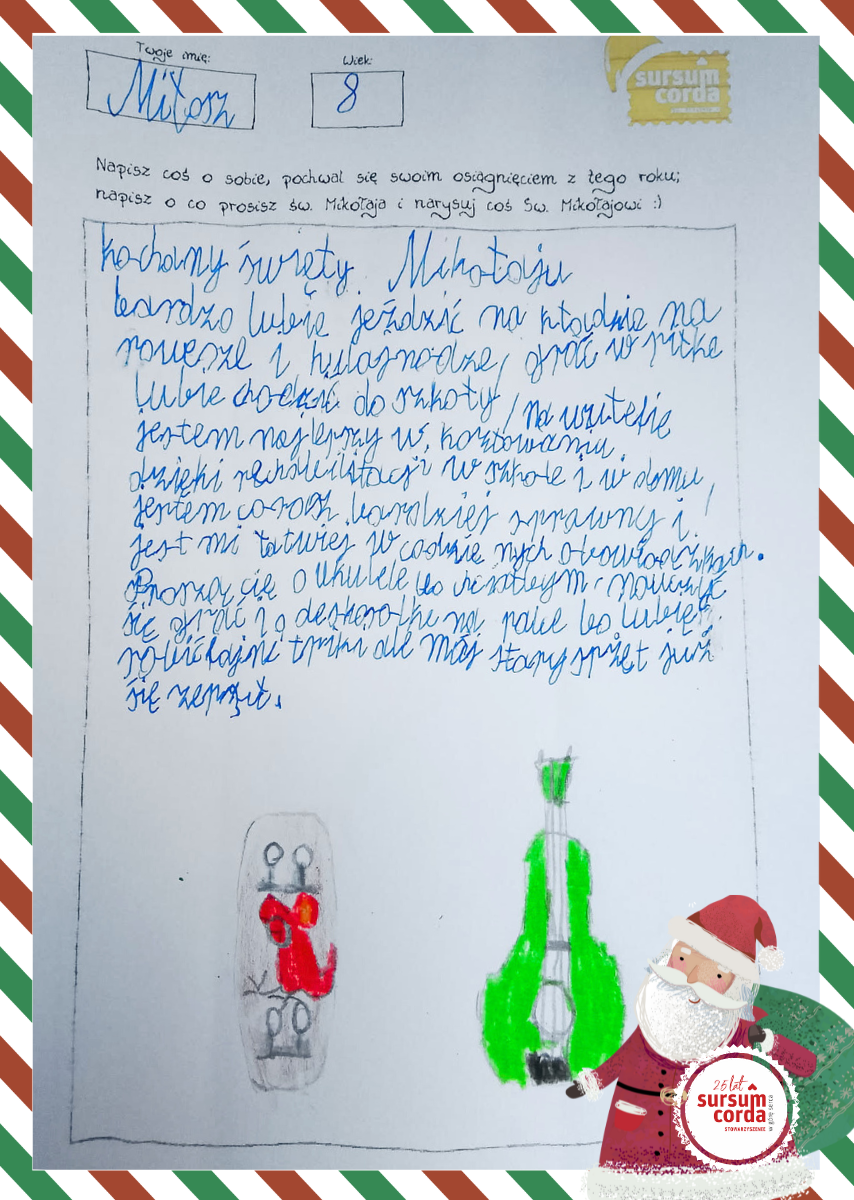 Twoje imię:
Wiek:
Miłosz
8
sursum
corda
Napisz coś o sobie, pochwal się swoim osiągnięciem z tego roku;
napisz o co prosisz św. Mikołaja i narysuj coś Św. Mikołajowi :)
kochany święty Mikołaju
bardzo lubię jeździć na kładzie na
rowerze i hulajnodze, grać w piłke
lubie chodzić do szkoły, na wufefię
jestem najlepszy w kozłowaniu.
dzięki rechabilitacji w szkole i w domu,
jestem coraz bardziej sprawny i
jest mi łatwiej w codzie nych obowiązkach.
Proszę cię o ukulele bo chciałbym nauczyć
się grać i o deskorolke na palce bo lubię
robić fajne triki ale mój stary sprzęt już
się zepsuł.
26 lat
sursum
corda
STOWARZYSZENIE
w górę serca